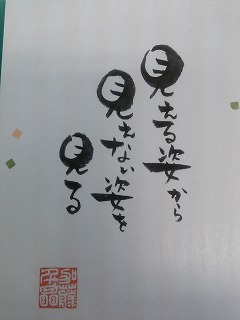 見える姿から
見えない姿を
見る
加藤